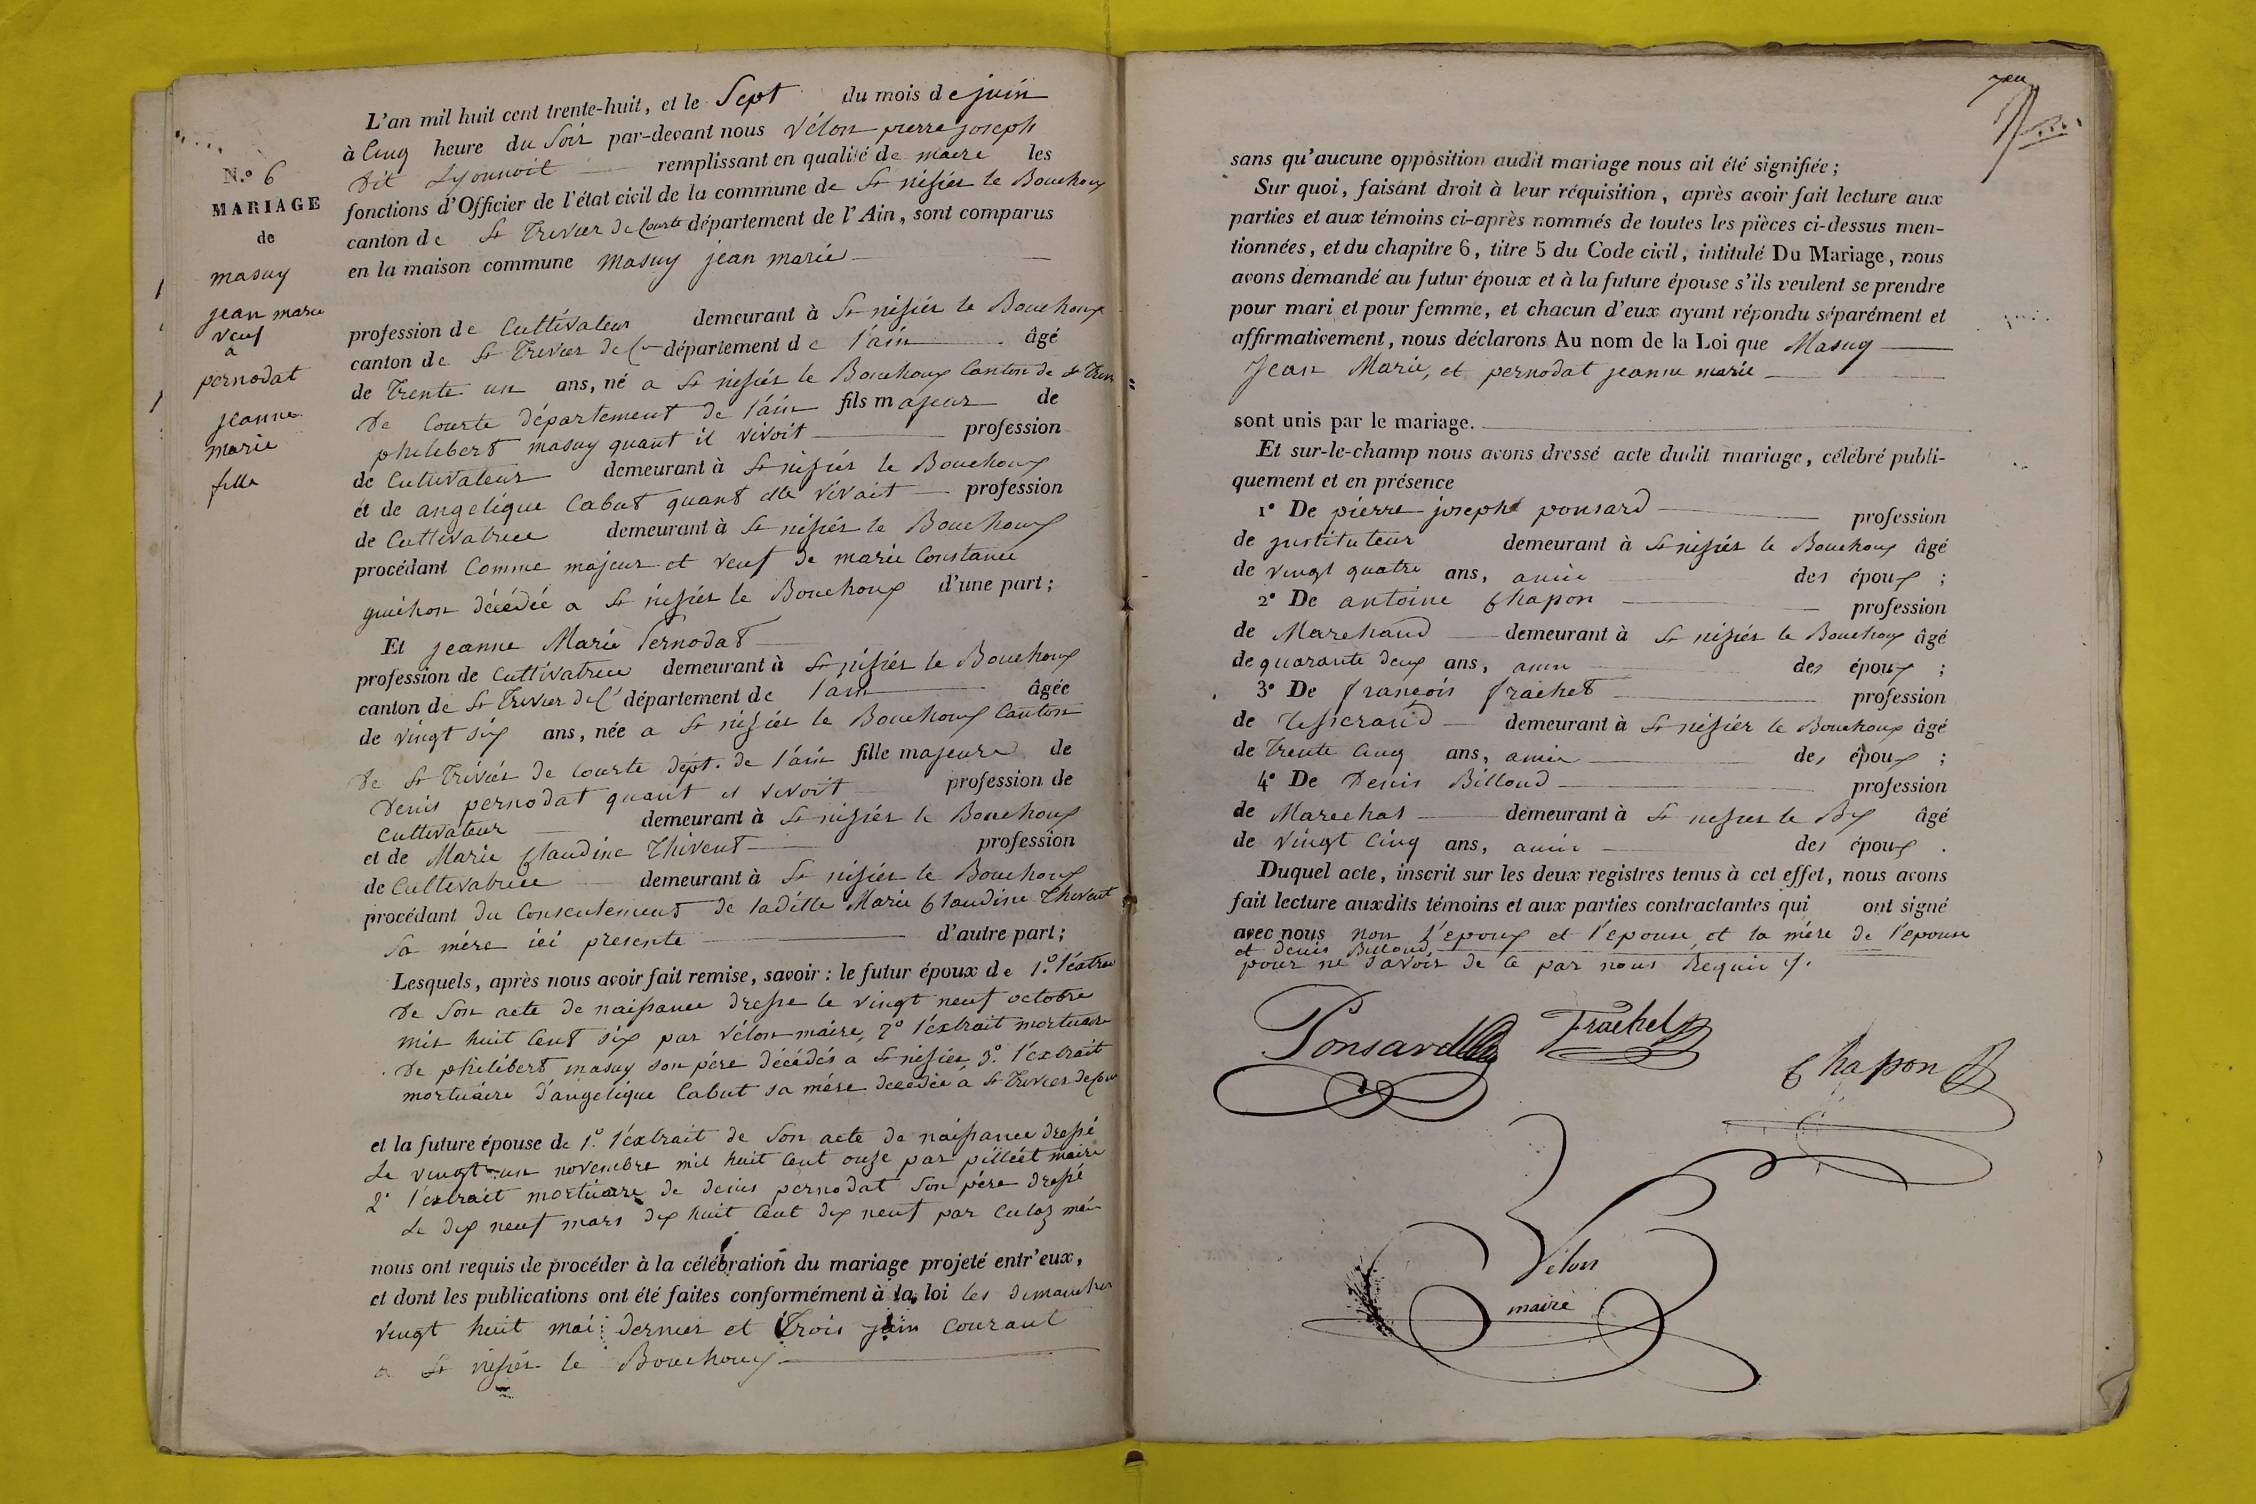 N.o 6
MARIAGE
de
masuy
jean marie
veuf
a
pernodat
jeanne
marie
fille
L'an mil huit cent trente-huit, et le Sept du mois de juin
à Cinq heure du Soir par-devant nous vélon pierre joseph
dit Lyonnoit remplissant en qualité de maire les
fonctions d'Officier de l'état civil de la commune de St nisiér le Bouchoux
canton de St Trivier de Courte département de l'Ain, sont comparus
en la maison commune masuy jean marie
profession de Cultivateur demeurant à St nisiér le Bouchoux
canton de St Trivier de C département de l'áin âgé
de Trente un ans, né a St nisiér le Bouchoux Canton de St Triv
de Courte département de l'áin fils majeur de
philibert masuy quant il vivoit profession
de Cultivateur demeurant à St nisiér le Bouchoux
et de angelique Cabut quant elle vivait profession
de Cultivatrice demeurant à St nisiér le Bouchoux
procédant Comme majeur et veuf de marie Constance
guichon décédée a St nisiér le Bouchoux d'une part;
Et jeanne Marie Pernodat
profession de Cultivatrice demeurant à St nisiér le Bouchoux
canton de St Trivier de C département de l'ain âgée
de vingt six ans, née a St nisiér le Bouchoux Canton
de St Triviér de Courte dépt. de l'áin fille majeure de
denis pernodat quant il vivoit profession de
Cultivateur demeurant à St nisiér le Bouchoux
et de Marie Claudine Thivent profession
de Cultivatrice demeurant à St nisiér le Bouchoux
procédant du Consentement de ladite Marie Claudine Thivent
sa mére ici presente d'autre part;
Lesquels, après nous avoir fait remise, savoir: le futur époux de 1.o l'éxtrai
de Son acte de naissance dressé le vingt neuf octobre
mil huit Cent six par vélon maire, 2o l'éxtrait mortuaire
de philibert masuy son pére décédés a St nisiér 3o. l'éxtrait
mortuaire d'angelique Cabut sa mére decedée á St Trivier de Cour
et la future épouse de 1.o l'éxtrait de Son acte de naissance dressé
Le vingt-un novembre mil huit Cent onze par pilléet maire
2o l'éxtrait mortuaire de denis pernodat Son pére dressé
Le dix neuf mars dix huit Cent dix neuf par Culaz mai
nous ont requis de procéder à la célébration du mariage projeté entr'eux,
et dont les publications ont été faites conformément à la loi les dimanches
vingt huit mai dernier et Trois juin Courant
a St nisiér le Bouchoux
sans qu'aucune opposition audit mariage nous ait été signifiée;
Sur quoi, faisant droit à leur réquisition, après avoir fait lecture aux
parties et aux témoins ci-après nommés de toutes les pièces ci-dessus men-
tionnées, et du chapitre 6, titre 5 du Code civil, intitulé Du Mariage, nous
avons demandé au futur époux et à la future épouse s'ils veulent se prendre
pour mari et pour femme, et chacun d'eux ayant répondu séparément et
affirmativement, nous déclarons Au nom de la Loi que Masuy
Jean Marie, et pernodat jeanne marie
sont unis par le mariage.
Et sur-le-champ nous avons dressé acte dudit mariage, célébré publi-
quement et en présence
1o De piérre joseph ponsard profession
de jnstituteur demeurant à St nisiér le Bouchoux âgé
de vingt quatre ans, amie des époux;
2o De antoine Chapon profession
de Marchand demeurant à St nisiér le Bouchoux âgé
de quarante deux ans, amie des époux;
3o De françois frachet profession
de Tisserand demeurant à St nisiér le Bouchoux âgé
de Trente Cinq ans, amie des époux;
4o De Denis Billoud profession
de Marechal demeurant à St nisier le Bx âgé
de vingt Cinq ans, amie des époux.
Duquel acte, inscrit sur les deux registres tenus à cet effet, nous avons
fait lecture auxdits témoins et aux parties contractantes qui ont signé
avec nous non l'époux et l'epouse et la mére de l'épouse
et denis Billoud
pour ne savoir de ce par nous Requis y.
Ponsard
Frachet
Chapon
Vélon
maire